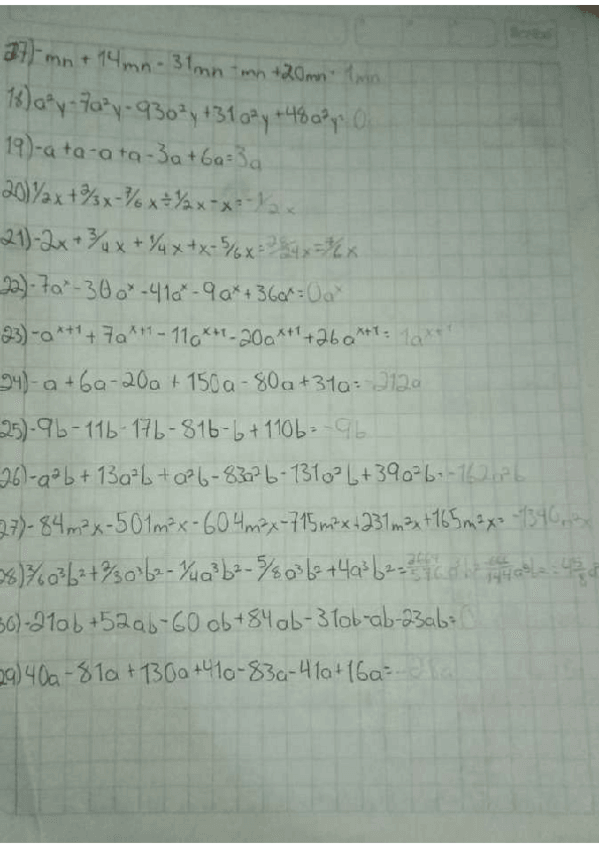 17) -mn + 14mn - 31mn - mn + 20mn = 1mn
18) a²y - 7a²y - 93a²y + 31a²y + 48a²y = 0
19) -a + a - a + a - 3a + 6a = 3a
20) 1/2x + 2/3x - 7/6x + 1/2x - x = -1/2x
21) -2x + 3/4x + 1/4x + x - 5/6x =
22) -7aˣ - 30aˣ - 41aˣ - 9aˣ + 36aˣ = 0aˣ
23) -aˣ⁺¹ + 7aˣ⁺¹ - 11aˣ⁺¹ - 20aˣ⁺¹ + 26aˣ⁺¹ = 1aˣ⁺¹
24) -a + 6a - 20a + 150a - 80a + 31a = 212a
25) -9b - 11b - 17b - 81b - b + 110b = -9b
26) -a²b + 13a²b + a²b - 83a²b - 131a²b + 39a²b = -162a²b
27) -84m²x - 501m²x - 604m²x - 715m²x + 231m²x + 165m²x =
28) 5/6a³b² + 2/3a³b² - 1/4a³b² - 5/8a³b² + 4a³b² =
30) -21ab + 52ab - 60ab + 84ab - 31ab - ab - 23ab = 0
29) 40a - 81a + 130a + 41a - 83a - 41a + 16a =